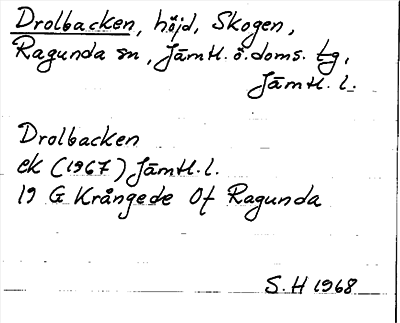 Drolbacken, höjd, Skogen,
Ragunda sn, Jämtl. ö. doms. tg,
Jämtl. l.
Drolbacken
ek (1967) Jämtl. l.
19 G Krångede Of Ragunda
S. H 1968